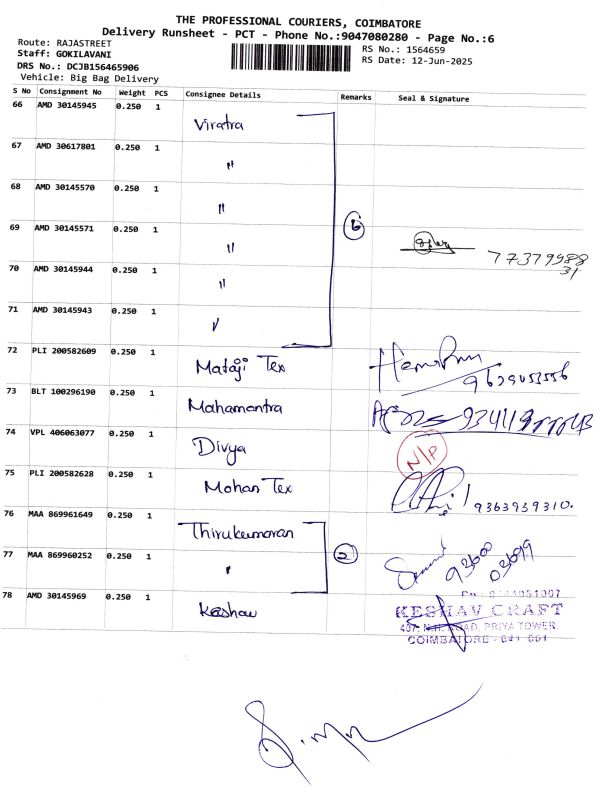 THE PROFESSIONAL COURIERS, COIMBATORE
Delivery Runsheet - PCT - Phone No.:9047080280 - Page No.:6
Route: RAJASTREET
Staff: GOKILAVANI
DRS No.: DCJB156465906
Vehicle: Big Bag Delivery
RS No.: 1564659
RS Date: 12-Jun-2025
S No Consignment No Weight PCS Consignee Details Remarks Seal & Signature
66 AMD 30145945 0.250 1 Viratra
67 AMD 30617801 0.250 1 "
68 AMD 30145570 0.250 1 "
69 AMD 30145571 0.250 1 " 6 77379988
31
70 AMD 30145944 0.250 1 "
71 AMD 30145943 0.250 1 "
72 PLI 200582609 0.250 1 Mataji Tex
73 BLT 100296190 0.250 1 Mahamantra
74 VPL 406063077 0.250 1 Divya N/P
75 PLI 200582628 0.250 1 Mohan Tex 9363939310.
76 MAA 869961649 0.250 1 Thirukumaran
77 MAA 869960252 0.250 1 " 2 93600
03699
78 AMD 30145969 0.250 1 Keshav
KESHAV CRAFT
PRIYA TOWER,
COIMBATORE - 641 001